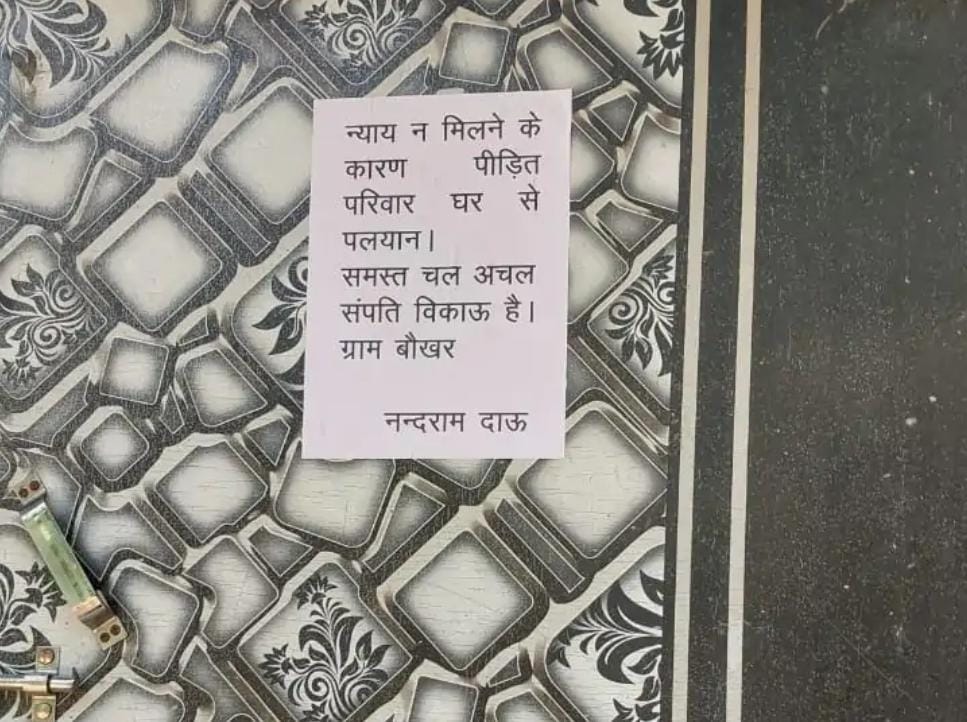 न्याय न मिलने के
कारण पीड़ित
परिवार घर से
पलयान।
समस्त चल अचल
संपति विकाऊ है।
ग्राम बौखर
नन्दराम दाऊ